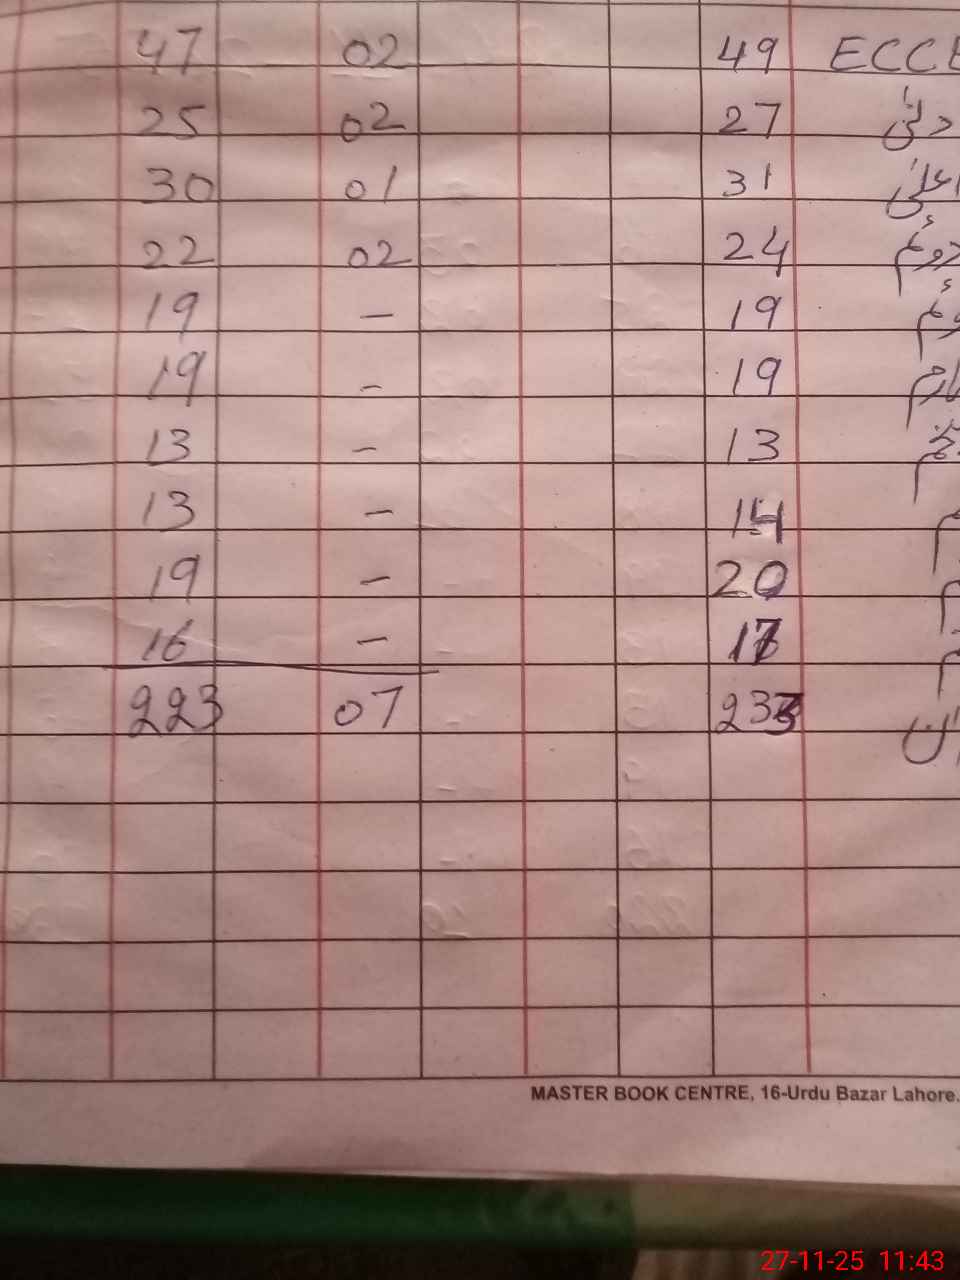 47 02 49 ECCE
25 02 27 ادنیٰ
30 01 31 اعلیٰ
22 02 24 دوئم
19 – 19
19 – 19
13 – 13
13 – 14
19 – 20
16 – 17
223 07 233
MASTER BOOK CENTRE, 16-Urdu Bazar Lahore.
27-11-25 11:43